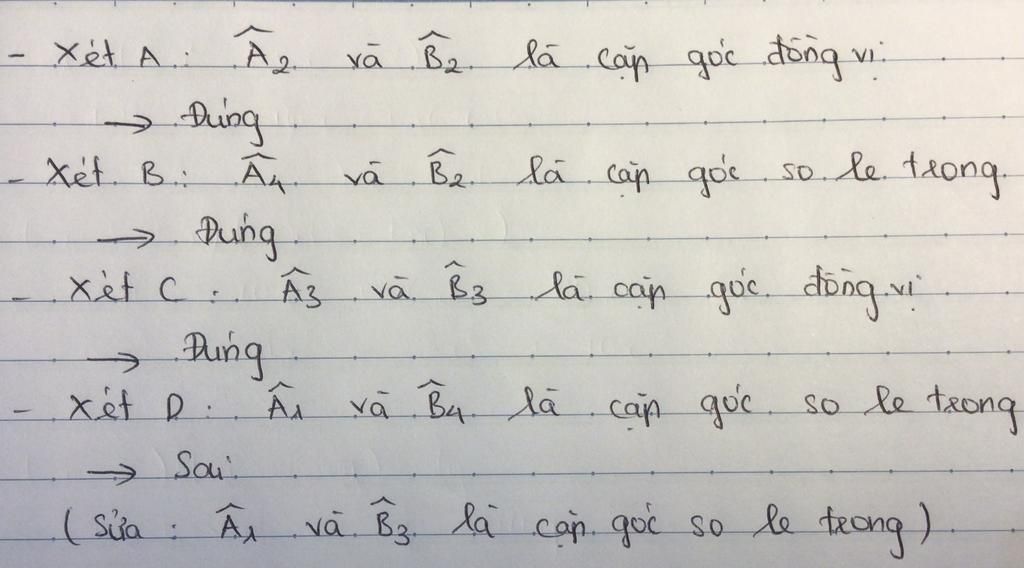 - Xét A : Â₂ và B̂₂ là cặp góc đồng vị.
→ Đúng
- Xét B : Â₄ và B̂₂ là cặp góc so le trong.
→ Đúng
- Xét C : Â₃ và B̂₃ là cặp góc đồng vị
→ Đúng
- Xét D : Â₁ và B̂₄ là cặp góc so le trong
→ Sai.
( Sửa : Â₁ và B̂₃ là cặp góc so le trong ).